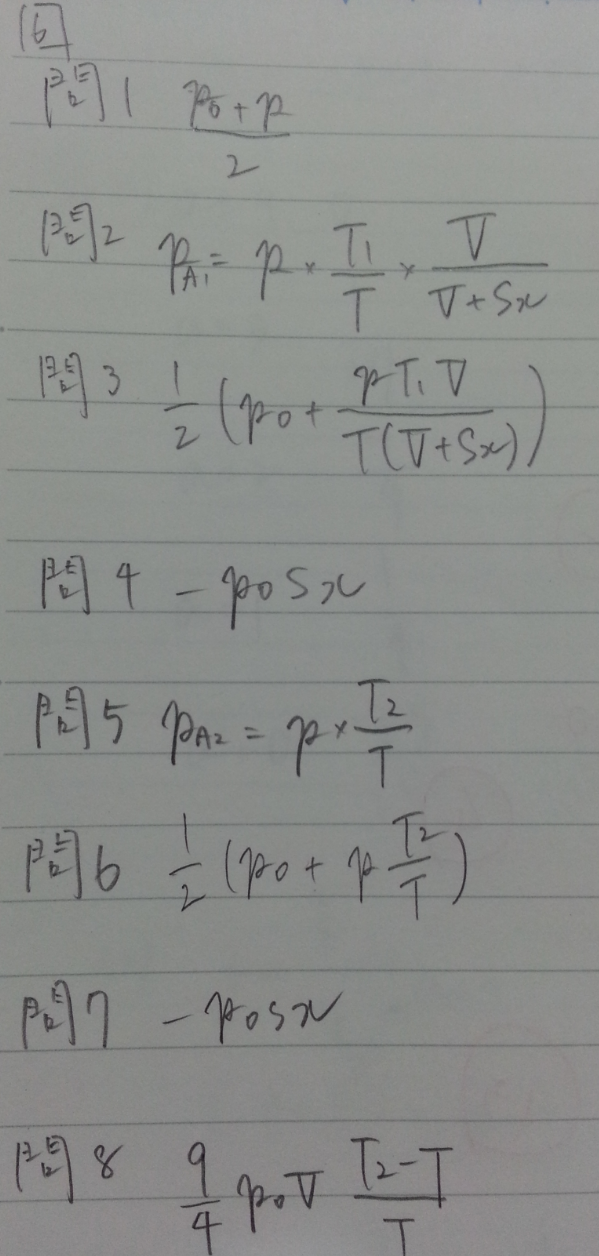 [6]
問1 (p₀ + p)/2
問2 p_A₁ = p × T₁/T × V/(V + Sx)
問3 1/2 (p₀ + pT₁V/(T(V + Sx)))
問4 − p₀Sx
問5 p_A₂ = p × T₂/T
問6 1/2 (p₀ + p T₂/T)
問7 − p₀Sx
問8 9/4 p₀V (T₂ − T)/T